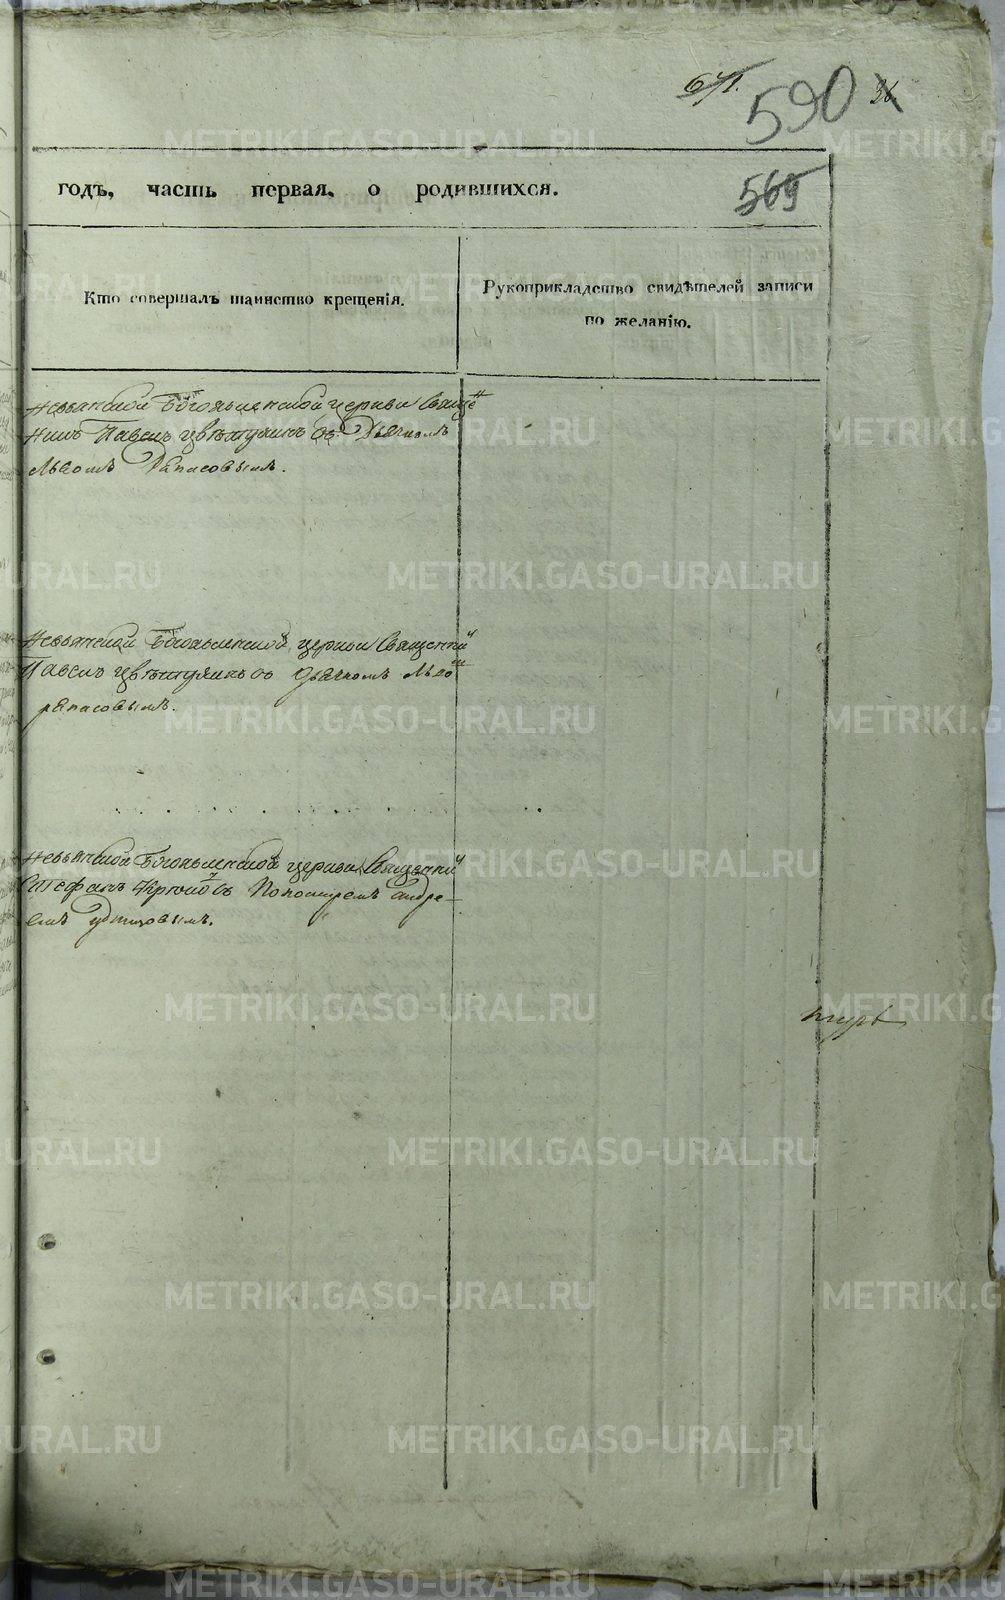 671.
590
36
годъ, часть первая, о родившихся.
569
Кто совершалъ таинство крещенія.
Рукоприкладство свидѣтелей записи
по желанію.
Невьянской Богоявленской церкви Священ
никъ Павелъ Цвѣтухинъ съ Дьячкомъ
Львомъ
Невьянской Богоявленской церкви Священни
Павелъ Цвѣтухинъ съ Дьячкомъ Льво
Невьянской Богоявленской церкви Священни
Стефанъ съ Пономаремъ Андре-
емъ Удинцовымъ.
METRIKI.GASO-URAL.RU